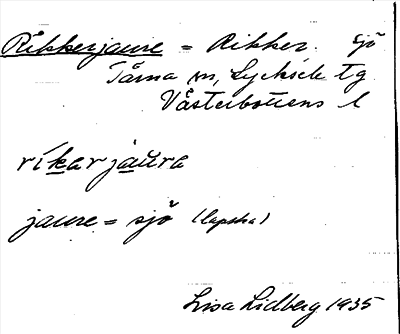 Rikkerjaure = Rikker. Sjö
Tärna sn, Lycksele tg
Västerbottens l
ríkarjaura
jaure = sjö (lapska)
Lisa Lidberg 1935